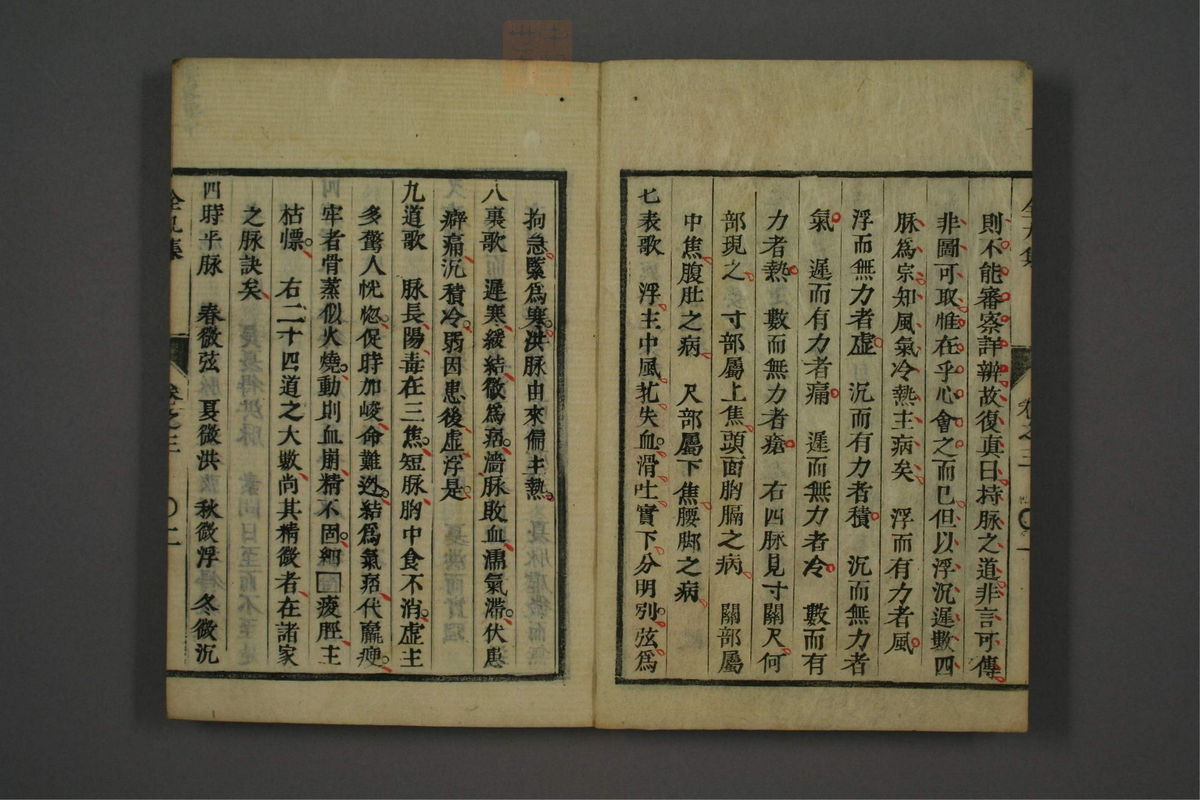 則不能審察詳辨故復真曰持脉之道非言可傳
非圖可取惟在乎心會之而已但以浮沉遲數四
脉爲宗知風氣冷熱主病矣　浮而有力者風
浮而無力者虛　沉而有力者積　沉而無力者
氣　遲而有力者痛　遲而無力者冷　數而有
力者熱　數而無力者瘡　右四脉見寸關尺何
部現之寸部屬上焦頭面胸膈之病　關部屬
中焦腹肚之病　尺部屬下焦腰脚之病
七表歌　浮主中風芤失血滑吐實下分明別弦爲
拘急緊爲寒洪脉由來偏主熱
八裏歌　遲寒緩結微爲痞濇脉敗血濡氣滯伏患
癖痛沉積冷弱因患後虛浮是
九道歌　脉長陽毒在三焦短脉胸中食不消虛主
多驚人恍惚促時加峻命難迯結爲氣痞代羸瘦
牢者骨蒸似火燒動則血崩精不固細□痠脛主
枯慓　右二十四道之大數尚其精微者在諸家
之脉訣矣
四時平脉　春微弦　夏微洪　秋微浮　冬微沉
卷之三